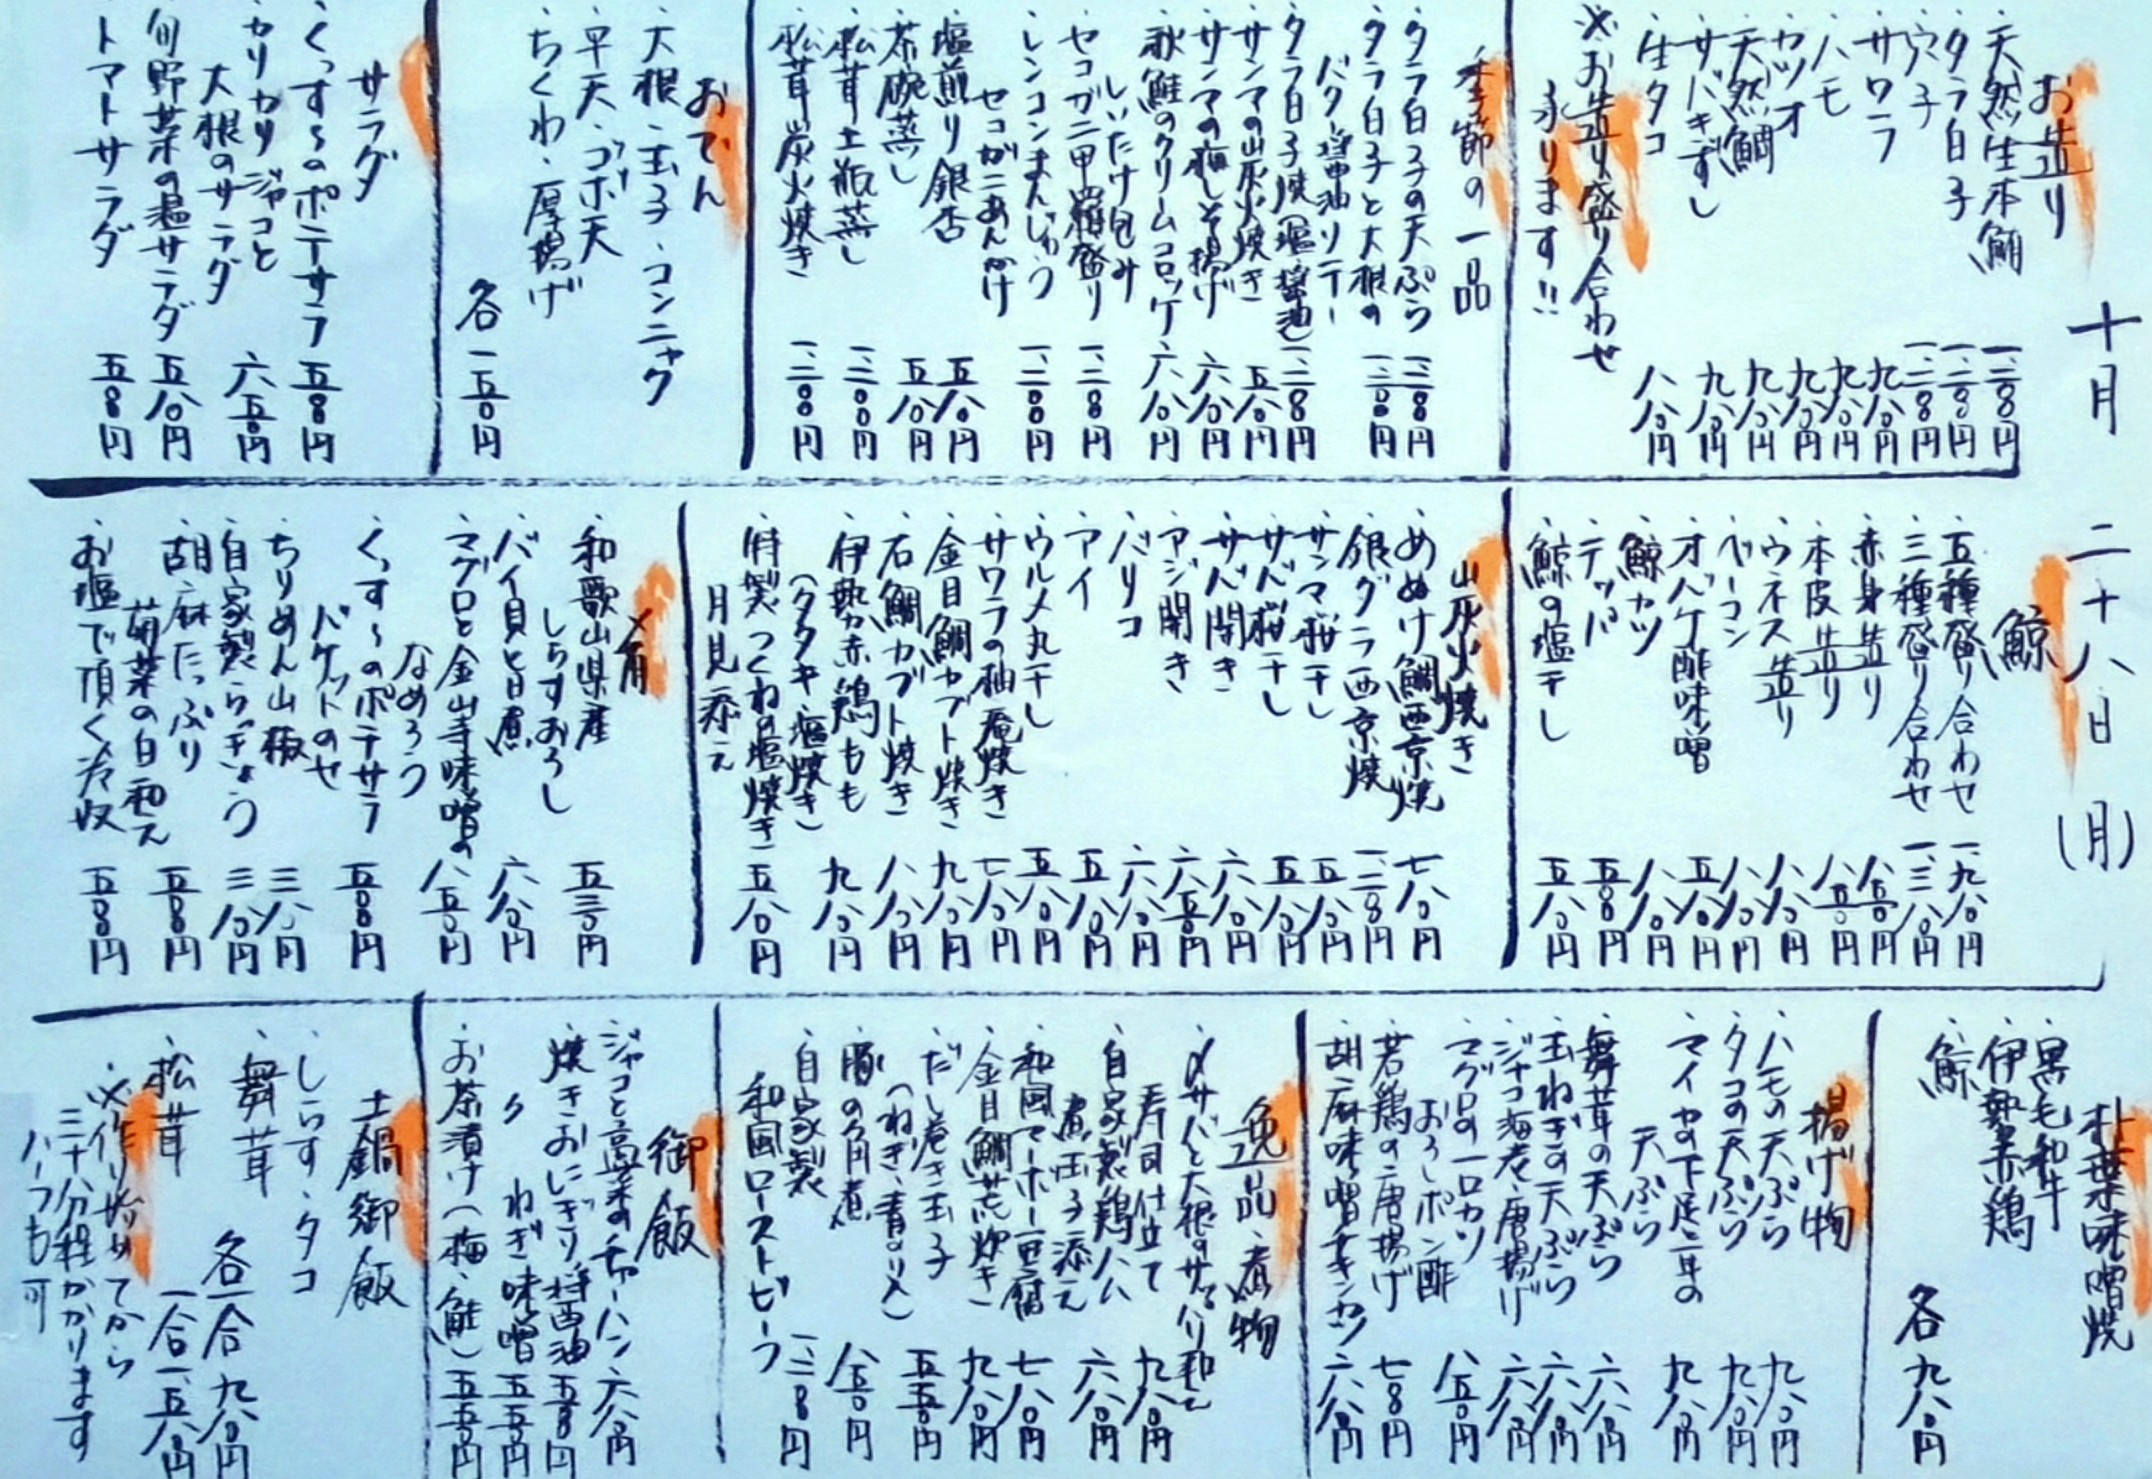 十月二十八日(月)
お造り
・天然生本鮪 一、二八〇円
・タラ白子 一、二八〇円
・穴子 一、二八〇円
・サワラ 九八〇円
・ハモ 九八〇円
・カツオ 九八〇円
・天然鯛 九八〇円
・サバきずし 九八〇円
・生タコ 八八〇円
※お造り盛り合わせ
承ります!!
季節の一品
・タラ白子の天ぷら
・タラ白子と大根の
バター醤油ソテー
・タラ白子焼(塩・醤油)
・サンマの山炭火焼き 五八〇円
・サンマの梅しそ揚げ 六八〇円
・秋鮭のクリームコロッケ 六八〇円
しいたけ包み
・セコガニ甲羅盛り
・レンコンまんじゅう
セコがにあんかけ
・塩煎り銀杏 五八〇円
・茶碗蒸し 五八〇円
・松茸土瓶蒸し
・松茸炭火焼き
おでん
・大根・玉子・コンニャク
・平天・ゴボ天
・ちくわ・厚揚げ
各一五〇円
サラダ
・くっす〜のポテサラ 五八〇円
・カリカリジャコと
大根のサラダ 六五〇円
・旬野菜の温サラダ 五八〇円
・トマトサラダ 五八〇円
鯨
・五種盛り合わせ 一、九八〇円
・三種盛り合わせ 一、三八〇円
・赤身造り 八五〇円
・本皮造り 八五〇円
・ウネス造り 八八〇円
・ベーコン 八八〇円
・オバケ酢味噌 五八〇円
・鯨カツ 八八〇円
・テッパ 五八〇円
・鯨の塩干し 五八〇円
山炭火焼き
・めぬけ鯛西京焼 七八〇円
・銀ダラ西京焼 一、二八〇円
・サンマ桜干し 五八〇円
・サバ桜干し 五八〇円
・サバ開き 六八〇円
・アジ開き 六五〇円
・バリコ 六八〇円
・アイ 五八〇円
・ウルメ丸干し 五八〇円
・サワラの柚庵焼き 七八〇円
・金目鯛カブト焼き 九八〇円
・石鯛カブト焼き 八八〇円
・伊勢赤鶏もも 九八〇円
(タタキ・塩焼き)
・特製つくねの塩焼き 五八〇円
月見添え
・和歌山県産
しらすおろし 五三〇円
・バイ貝と旨煮 六八〇円
・マグロと金山寺味噌の
なめろう 八五〇円
・くっす〜のポテサラ
バケットのせ 五八〇円
・ちりめん山椒 三八〇円
・自家製らっきょう 三八〇円
・胡麻たっぷり
菊菜の白和え 五八〇円
・お塩で頂く冷奴 五八〇円
朴葉味噌焼
・黒毛和牛
・伊勢赤鶏
・鯨
各九八〇円
揚げ物
・ハモの天ぷら 九八〇円
・タコの天ぷら 九八〇円
・マイカの下足二本の
天ぷら 九八〇円
・舞茸の天ぷら 六八〇円
・玉ねぎの天ぷら 六八〇円
・ジャコ海老唐揚げ 六八〇円
・マグロの一口カツ
おろしポン酢 八五〇円
・若鶏の唐揚げ 七八〇円
・胡麻味噌チキンカツ 六八〇円
逸品・煮物
・〆サバと大根のサッパリ和え
寿司仕立て 九八〇円
・自家製鶏ハム
煮玉子添え 六八〇円
・和風マーボー豆腐 七八〇円
・金目鯛荒炊き 九八〇円
・だし巻き玉子 五五〇円
(ねぎ・青のリメ)
・豚の角煮 八五〇円
・自家製
和風ローストビーフ
御飯
・ジャコと高菜のチャーハン 六八〇円
・焼きおにぎり 醤油 五五〇円
〃 ねぎ味噌 五五〇円
・お茶漬け(梅・鮭) 五五〇円
土鍋御飯
・しらす・タコ
・舞茸 各一合九八〇円
・松茸 一合一、五八〇円
※作り始めてから
三十分程かかります
ハーフも可